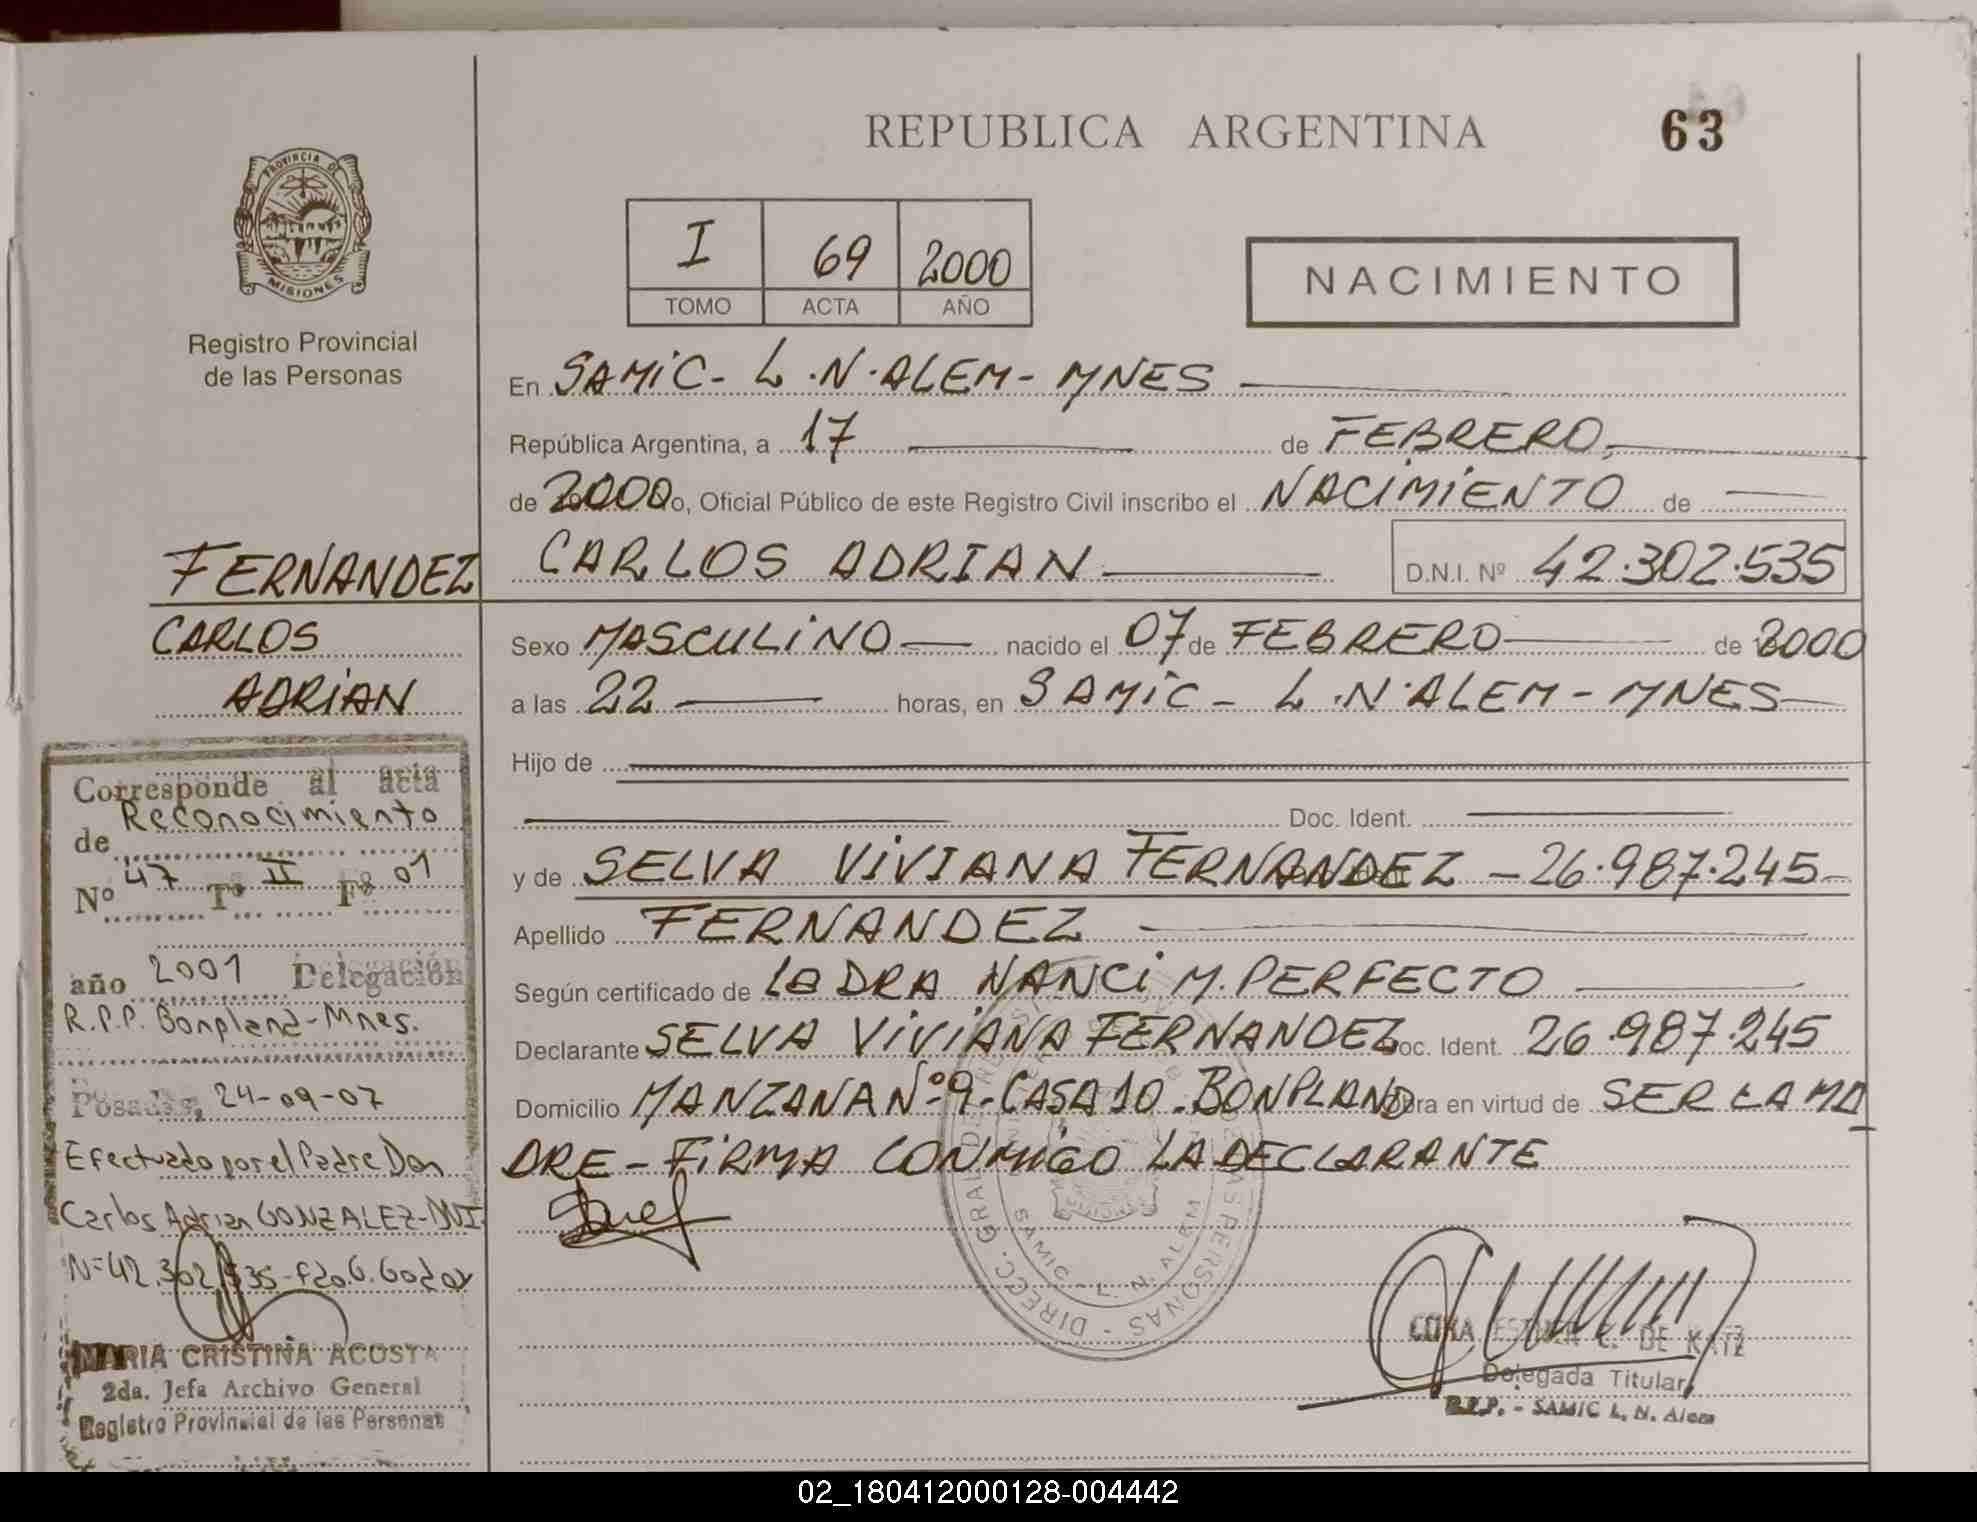 REPUBLICA ARGENTINA
63
PROVINCIA DE
MISIONES
Registro Provincial
de las Personas
I 69 2000
TOMO ACTA AÑO
NACIMIENTO
En SAMIC - L.N. ALEM - MNES
República Argentina, a 17 de FEBRERO
de 2000 o, Oficial Público de este Registro Civil inscribo el NACIMIENTO de
CARLOS ADRIAN D.N.I. Nº 42.302.535
Sexo MASCULINO nacido el 07 de FEBRERO de 2000
a las 22 horas, en SAMIC - L.N. ALEM - MNES
Hijo de
Doc. Ident.
y de SELVA VIVIANA FERNANDEZ - 26.987.245
Apellido FERNANDEZ
Según certificado de la DRA NANCI M. PERFECTO
Declarante SELVA VIVIANA FERNANDEZ oc. Ident. 26.987.245
Domicilio MANZANA Nº 9 - CASA 10 - BONPLAND bra en virtud de SER LA MA
DRE - FIRMA CONMIGO LA DECLARANTE
FERNANDEZ
CARLOS
ADRIAN
Corresponde al acta
de Reconocimiento
Nº 47 Tº II Fº 01
año 2001 Delegación
R.P.P. Bonpland - Mnes.
Posadas, 24-09-07
Efectuado por el Padre Don
Carlos Adrian GONZALEZ - DNI
Nº 42.302.535 - Fdo. G. Godoy
MARIA CRISTINA ACOSTA
2da. Jefa Archivo General
Registro Provincial de las Personas
SAMIC - L. N. ALEM
DE KATZ
Delegada Titular
R.P.P. - SAMIC L. N. Alem
02_180412000128-004442